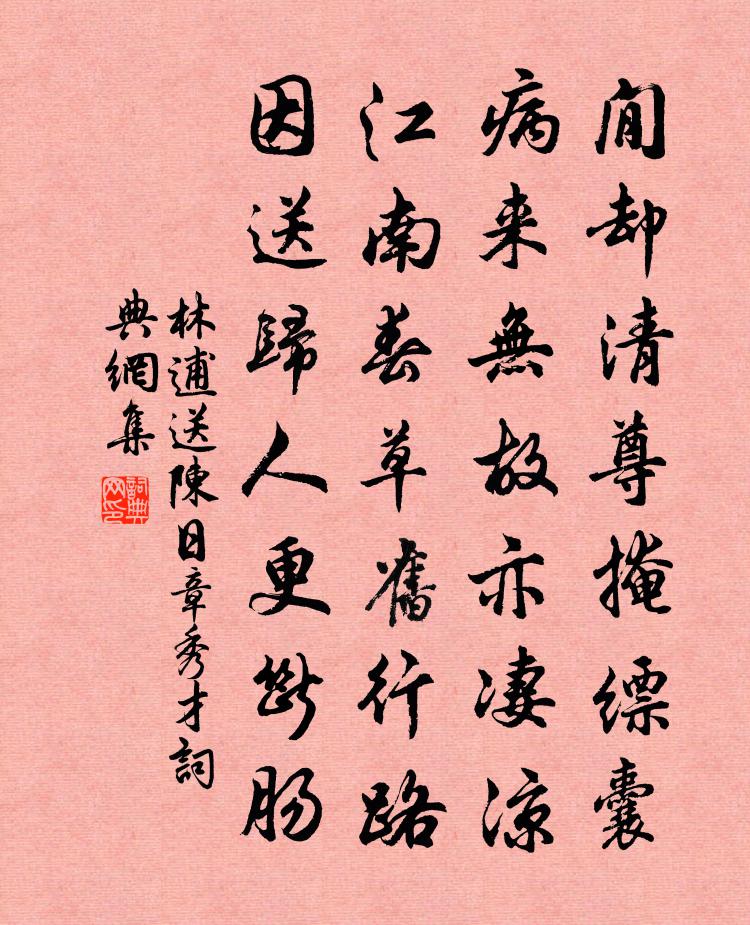 閒却清尊掩縹囊
病来無故亦凄涼
江南春草舊行路
因送歸人更斷腸
林逋送陳日章秀才詞
典網集
詞典网印